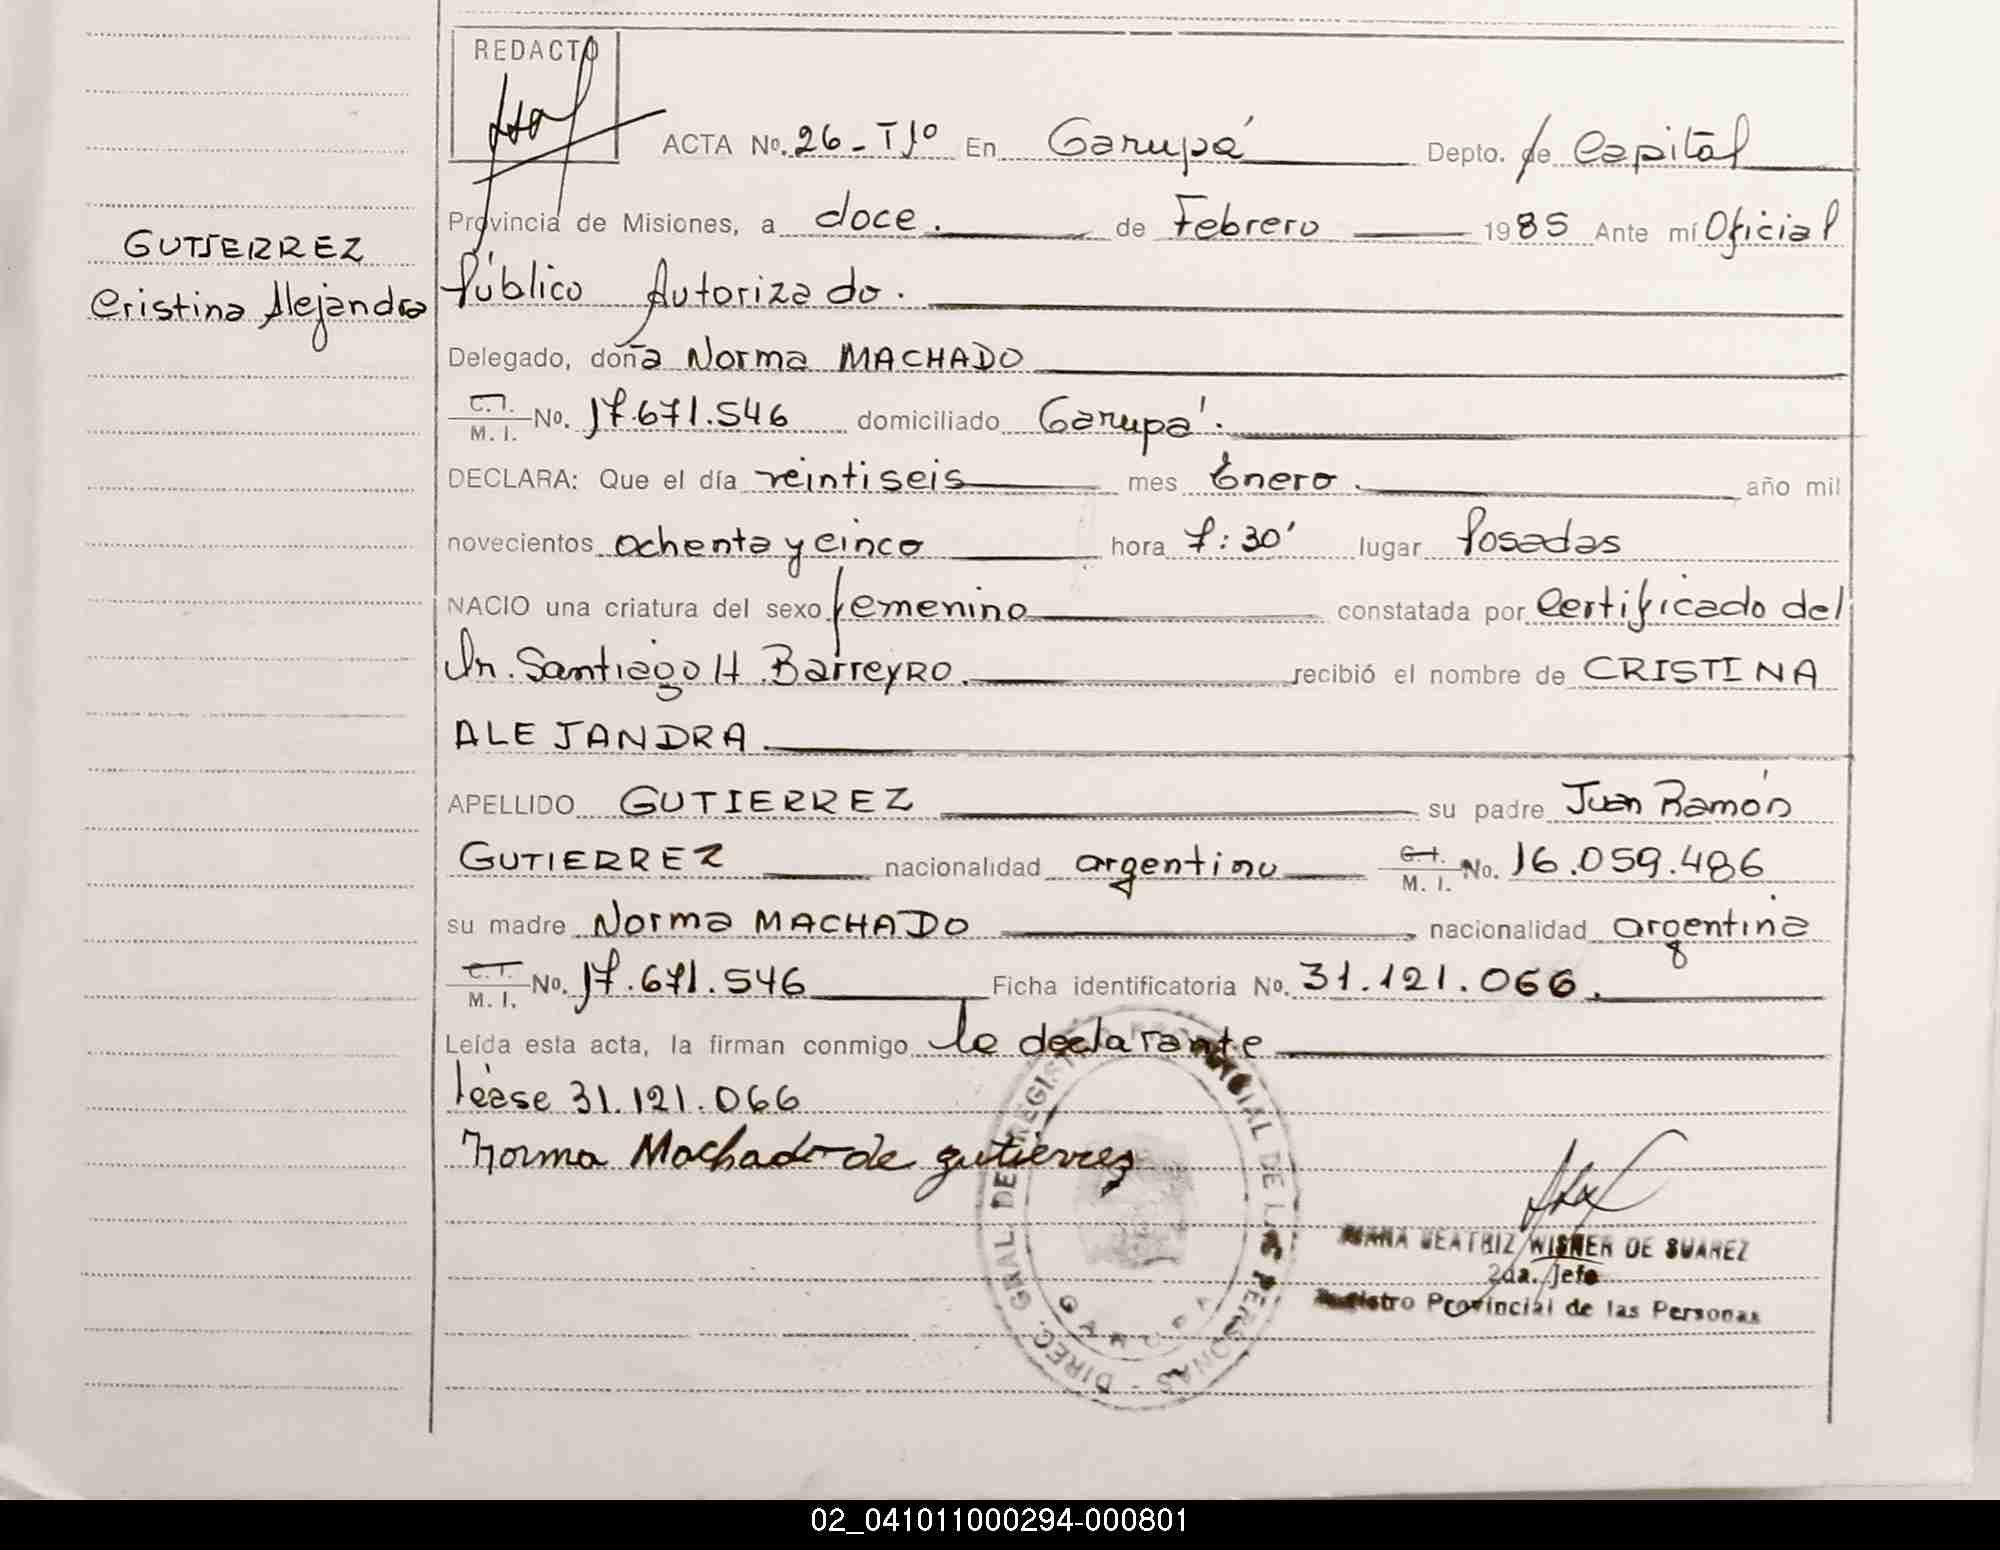 REDACTO
ACTA No. 26 - Tº 1º En Garupá Depto. de Capital
Provincia de Misiones, a doce. de Febrero 1985 Ante mí Oficial
GUTIERREZ
Cristina Alejandra
Público Autorizado.
Delegado, doña Norma MACHADO
C.I. M. I. No. 17.671.546 domiciliado Garupá.
DECLARA: Que el día veintiseis mes Enero. año mil
novecientos ochenta y cinco hora 7:30' lugar Posadas
NACIO una criatura del sexo femenino constatada por Certificado del
Dr. Santiago H. Barreyro. recibió el nombre de CRISTINA
ALEJANDRA
APELLIDO GUTIERREZ su padre Juan Ramón
GUTIERREZ nacionalidad argentino C.I. M. I. No. 16.059.486
su madre Norma MACHADO nacionalidad argentina
C.I. M. I. No. 17.671.546 Ficha identificatoria No. 31.121.066.
Leída esta acta, la firman conmigo la declarante
léase 31.121.066
Norma Machado de gutierrez
DIREC. GRAL. DEL REGISTRO PROVINCIAL DE LAS PERSONAS -
GARUPA
BEATRIZ WISNER DE SUAREZ
2da. Jefe
Registro Provincial de las Personas
02_041011000294-000801